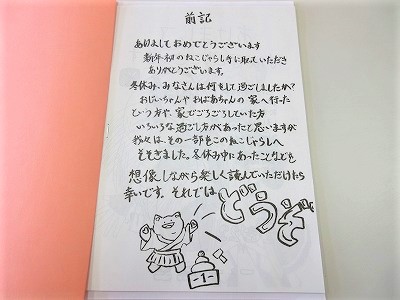 前記
あけましておめでとうございます
新年初のねこじゃらし手に取っていただき
ありがとうございます。
冬休み、みなさんは何をして過ごしましたか?
おじいちゃんやおばあちゃんの家へ行った
という方や、家でごろごろしていた方
いろいろな過ごし方があったと思いますが
我々は、その一部をこのねこじゃらしへ
そそぎました。冬休み中にあったことなどを
想像しながら楽しく読んでいただけたら
幸いです。それでは
どうぞ